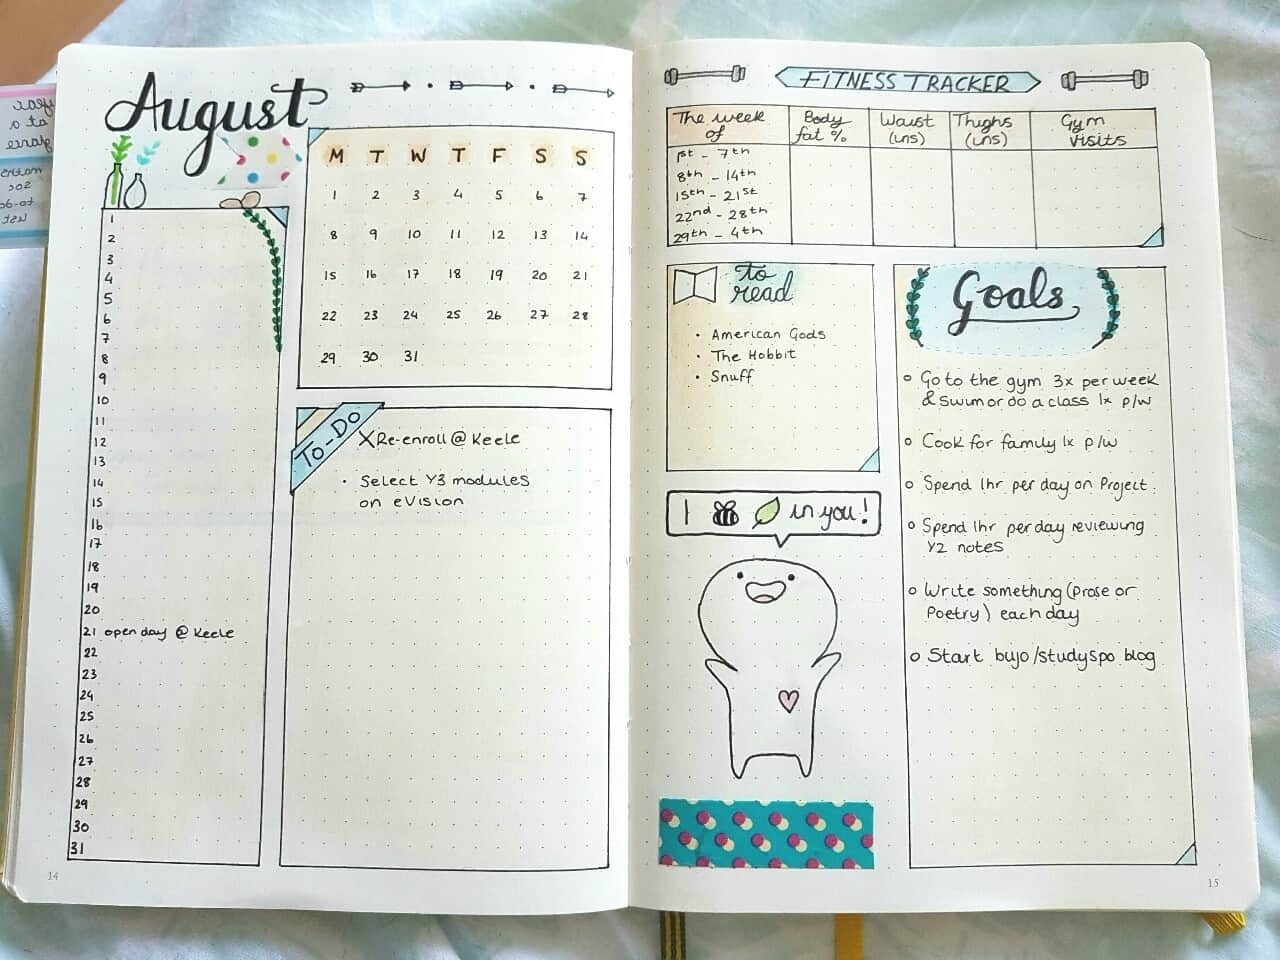 August
M T W T F S S
1 2 3 4 5 6 7
8 9 10 11 12 13 14
15 16 17 18 19 20 21
22 23 24 25 26 27 28
29 30 31
1
2
3
4
5
6
7
8
9
10
11
12
13
14
15
16
17
18
19
20
21 open day @ Keele
22
23
24
25
26
27
28
29
30
31
TO-DO
X Re-enroll @ Keele
• Select Y3 modules
on eVision
14
FITNESS TRACKER
The week Body Waist Thighs Gym
of fat % (ins) (ins) Visits
1st - 7th
8th - 14th
15th - 21st
22nd - 28th
29th - 4th
to
read
• American Gods
• The Hobbit
• Snuff
I in you!
Goals
Go to the gym 3x per week
& swim or do a class 1x p/w
Cook for family 1x p/w
Spend 1hr per day on Project.
Spend 1hr per day reviewing
Y2 notes
Write something (prose or
Poetry) each day
Start bujo/studyspo blog
15